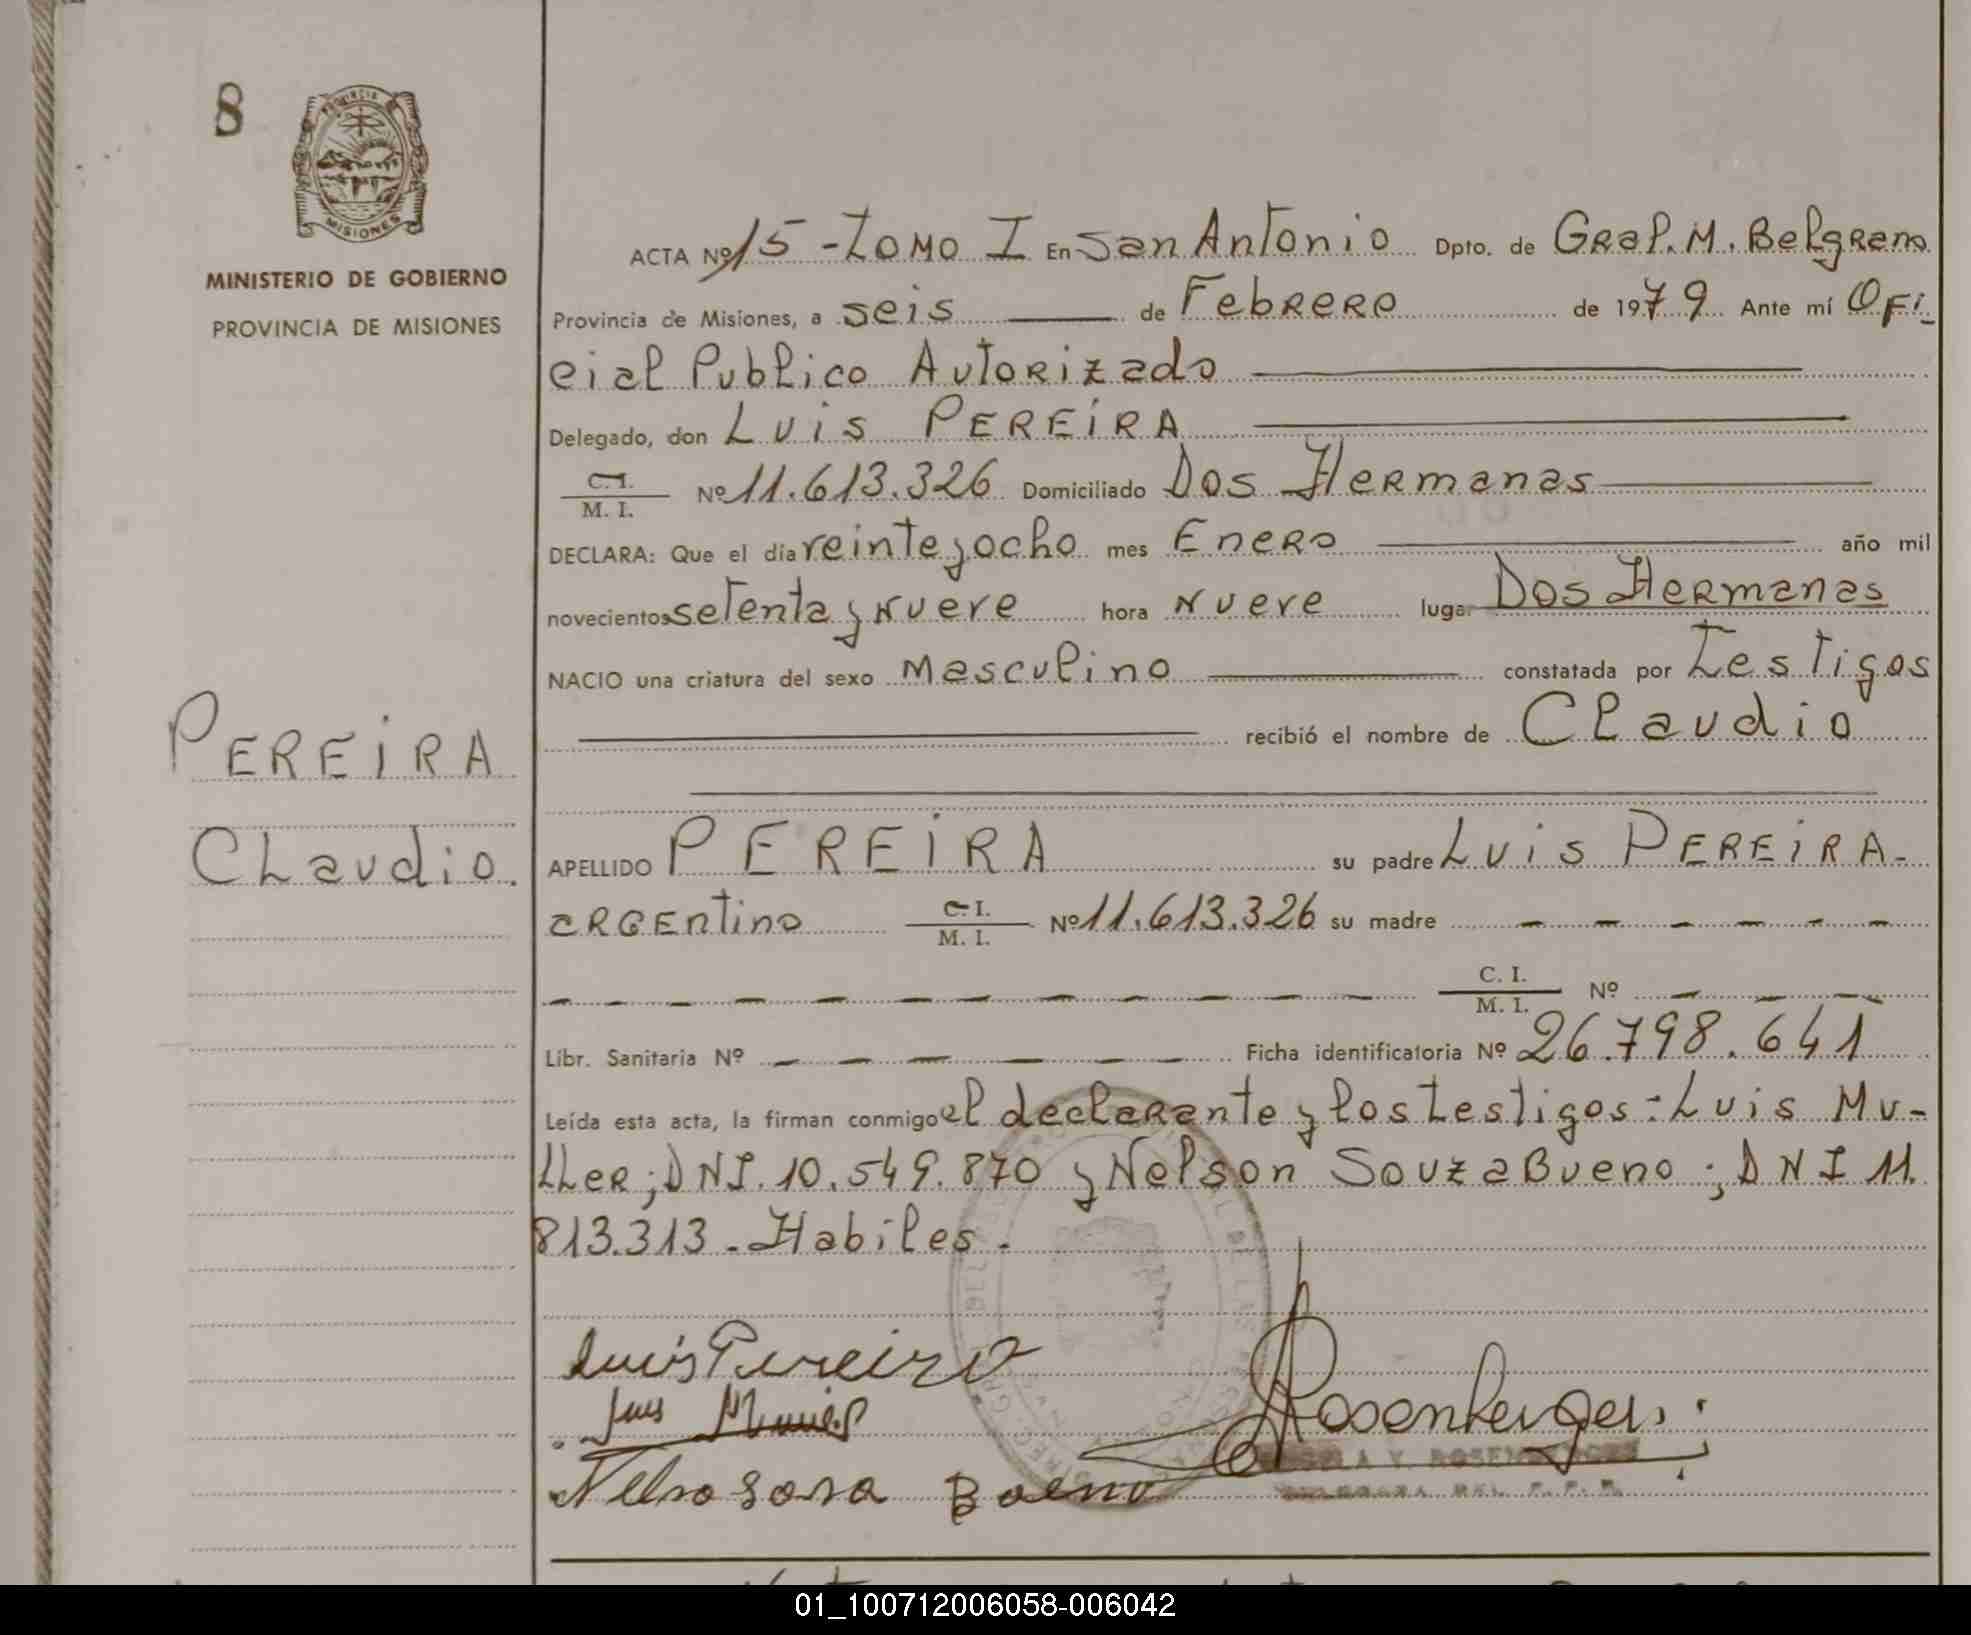 8
PROVINCIA
MISIONES
MINISTERIO DE GOBIERNO
PROVINCIA DE MISIONES
PEREiRA
CLaudio.
ACTA Nº 15 - TOMO I En San Antonio Dpto. de GRal. M. Belgrano
Provincia de Misiones, a seis de FebRERO de 1979 Ante mí OFi-
cial Publico AutoRizado
Delegado, don Luis PEREiRA
C. I. / M. I. Nº 11.613.326 Domiciliado Dos HeRmanas
DECLARA: Que el día veinte y ocho mes EneRo año mil
novecientos setenta y nueve hora nueve lugar Dos HeRmanas
NACIO una criatura del sexo masculino constatada por Testigos
recibió el nombre de CLaudio
APELLIDO PEREiRA su padre Luis PEREiRA-
aRGEntino C. I. / M. I. Nº 11.613.326 su madre - - - - - -
- - - - - - - - - - - - C. I. / M. I. Nº - - -
Libr. Sanitaria Nº - - - - - - Ficha identificatoria Nº 26.798.641
Leída esta acta, la firman conmigo el declaRante y los Testigos: Luis Mu-
LLeR; DNI. 10.549.870 y Nelson Souza Bueno; DNI 11.
813.313 - Habiles.
Luis Pereira
Luis
Rosenberger
Nelso Bueno
01_100712006058-006042